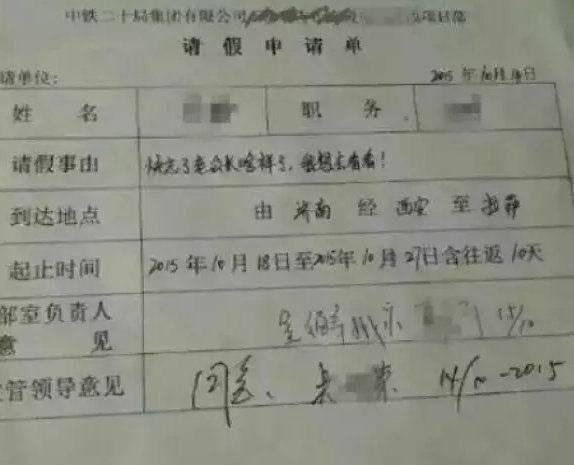 中铁二十局集团有限公司 项目部
请假申请单
请单位： 2015年10月14日
姓名 职务
请假事由 快忘了老公长啥样了，我想去看看！
到达地点 由 济南 经 西安 至 拉萨
起止时间 2015年10月18日至2015年10月27日含往返10天
部室负责人
意见 15/10
管领导意见 同意、 14/10-2015